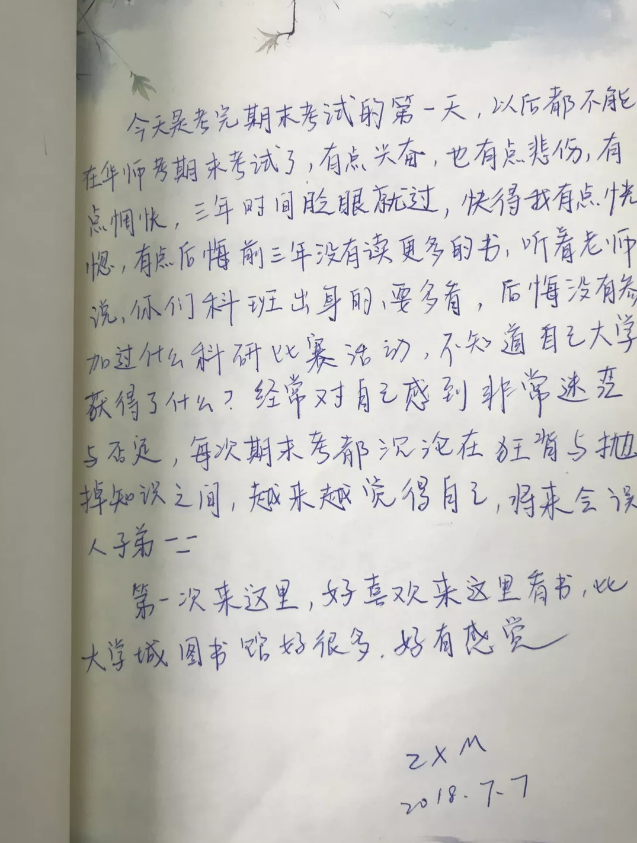 今天是考完期末考试的第一天，以后都不能
在华师考期末考试了，有点兴奋，也有点悲伤，有
点惆怅，三年时间眨眼就过，快得我有点恍
惚，有点后悔前三年没有读更多的书，听着老师
说，你们科班出身的，要多看，后悔没有参
加过什么科研比赛活动，不知道自己大学
获得了什么？经常对自己感到非常迷茫
与否定，每次期末考都沉沦在狂背与抛
掉知识之间，越来越觉得自己，将来会误
人子弟一二
第一次来这里，好喜欢来这里看书，比
大学城图书馆好很多，好有感觉
ZXM
2018.7.7